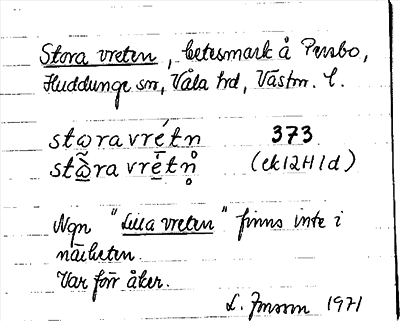 Stora vreten, betesmark å Persbo,
Huddunge sn, Våla hd, Västm. l.
stɷravrétn 373
stɷ̀ravrétn̥ (ek12H1d)
Ngn "Lilla vreten" finns inte i
närheten.
Var förr åker.
L. Jonsson 1971